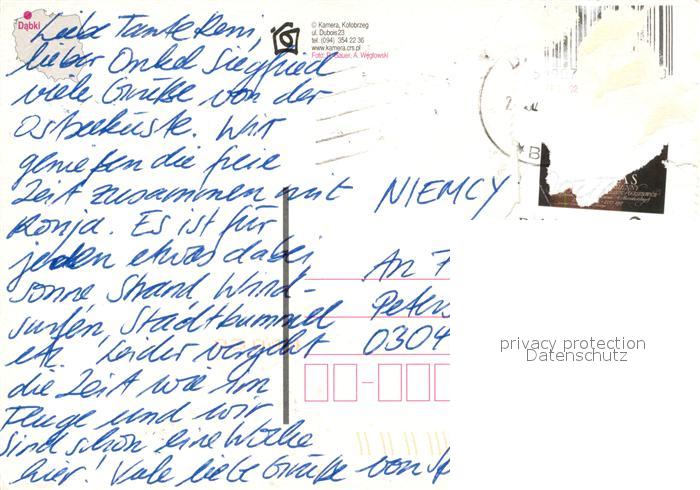 Dąbki
© Kamera, Kołobrzeg
ul. Dubois23
tel. (094) 354 22 36
www.kamera.crs.pl
Liebe Tante Reni,
lieber Onkel Siegfried
viele Grüße von der
Ostseeküste. Wir
genießen die freie
Zeit zusammen mit
Ronja. Es ist für
jeden etwas dabei
Sonne Strand, Wind-
surfen, Stadtbummel
etc. Leider vergeht
die Zeit wie im
Fluge und wir
sind schon eine Woche
hier! Viele liebe Grüße von
NIEMCY
An
Peters
0304
privacy protection
Datenschutz